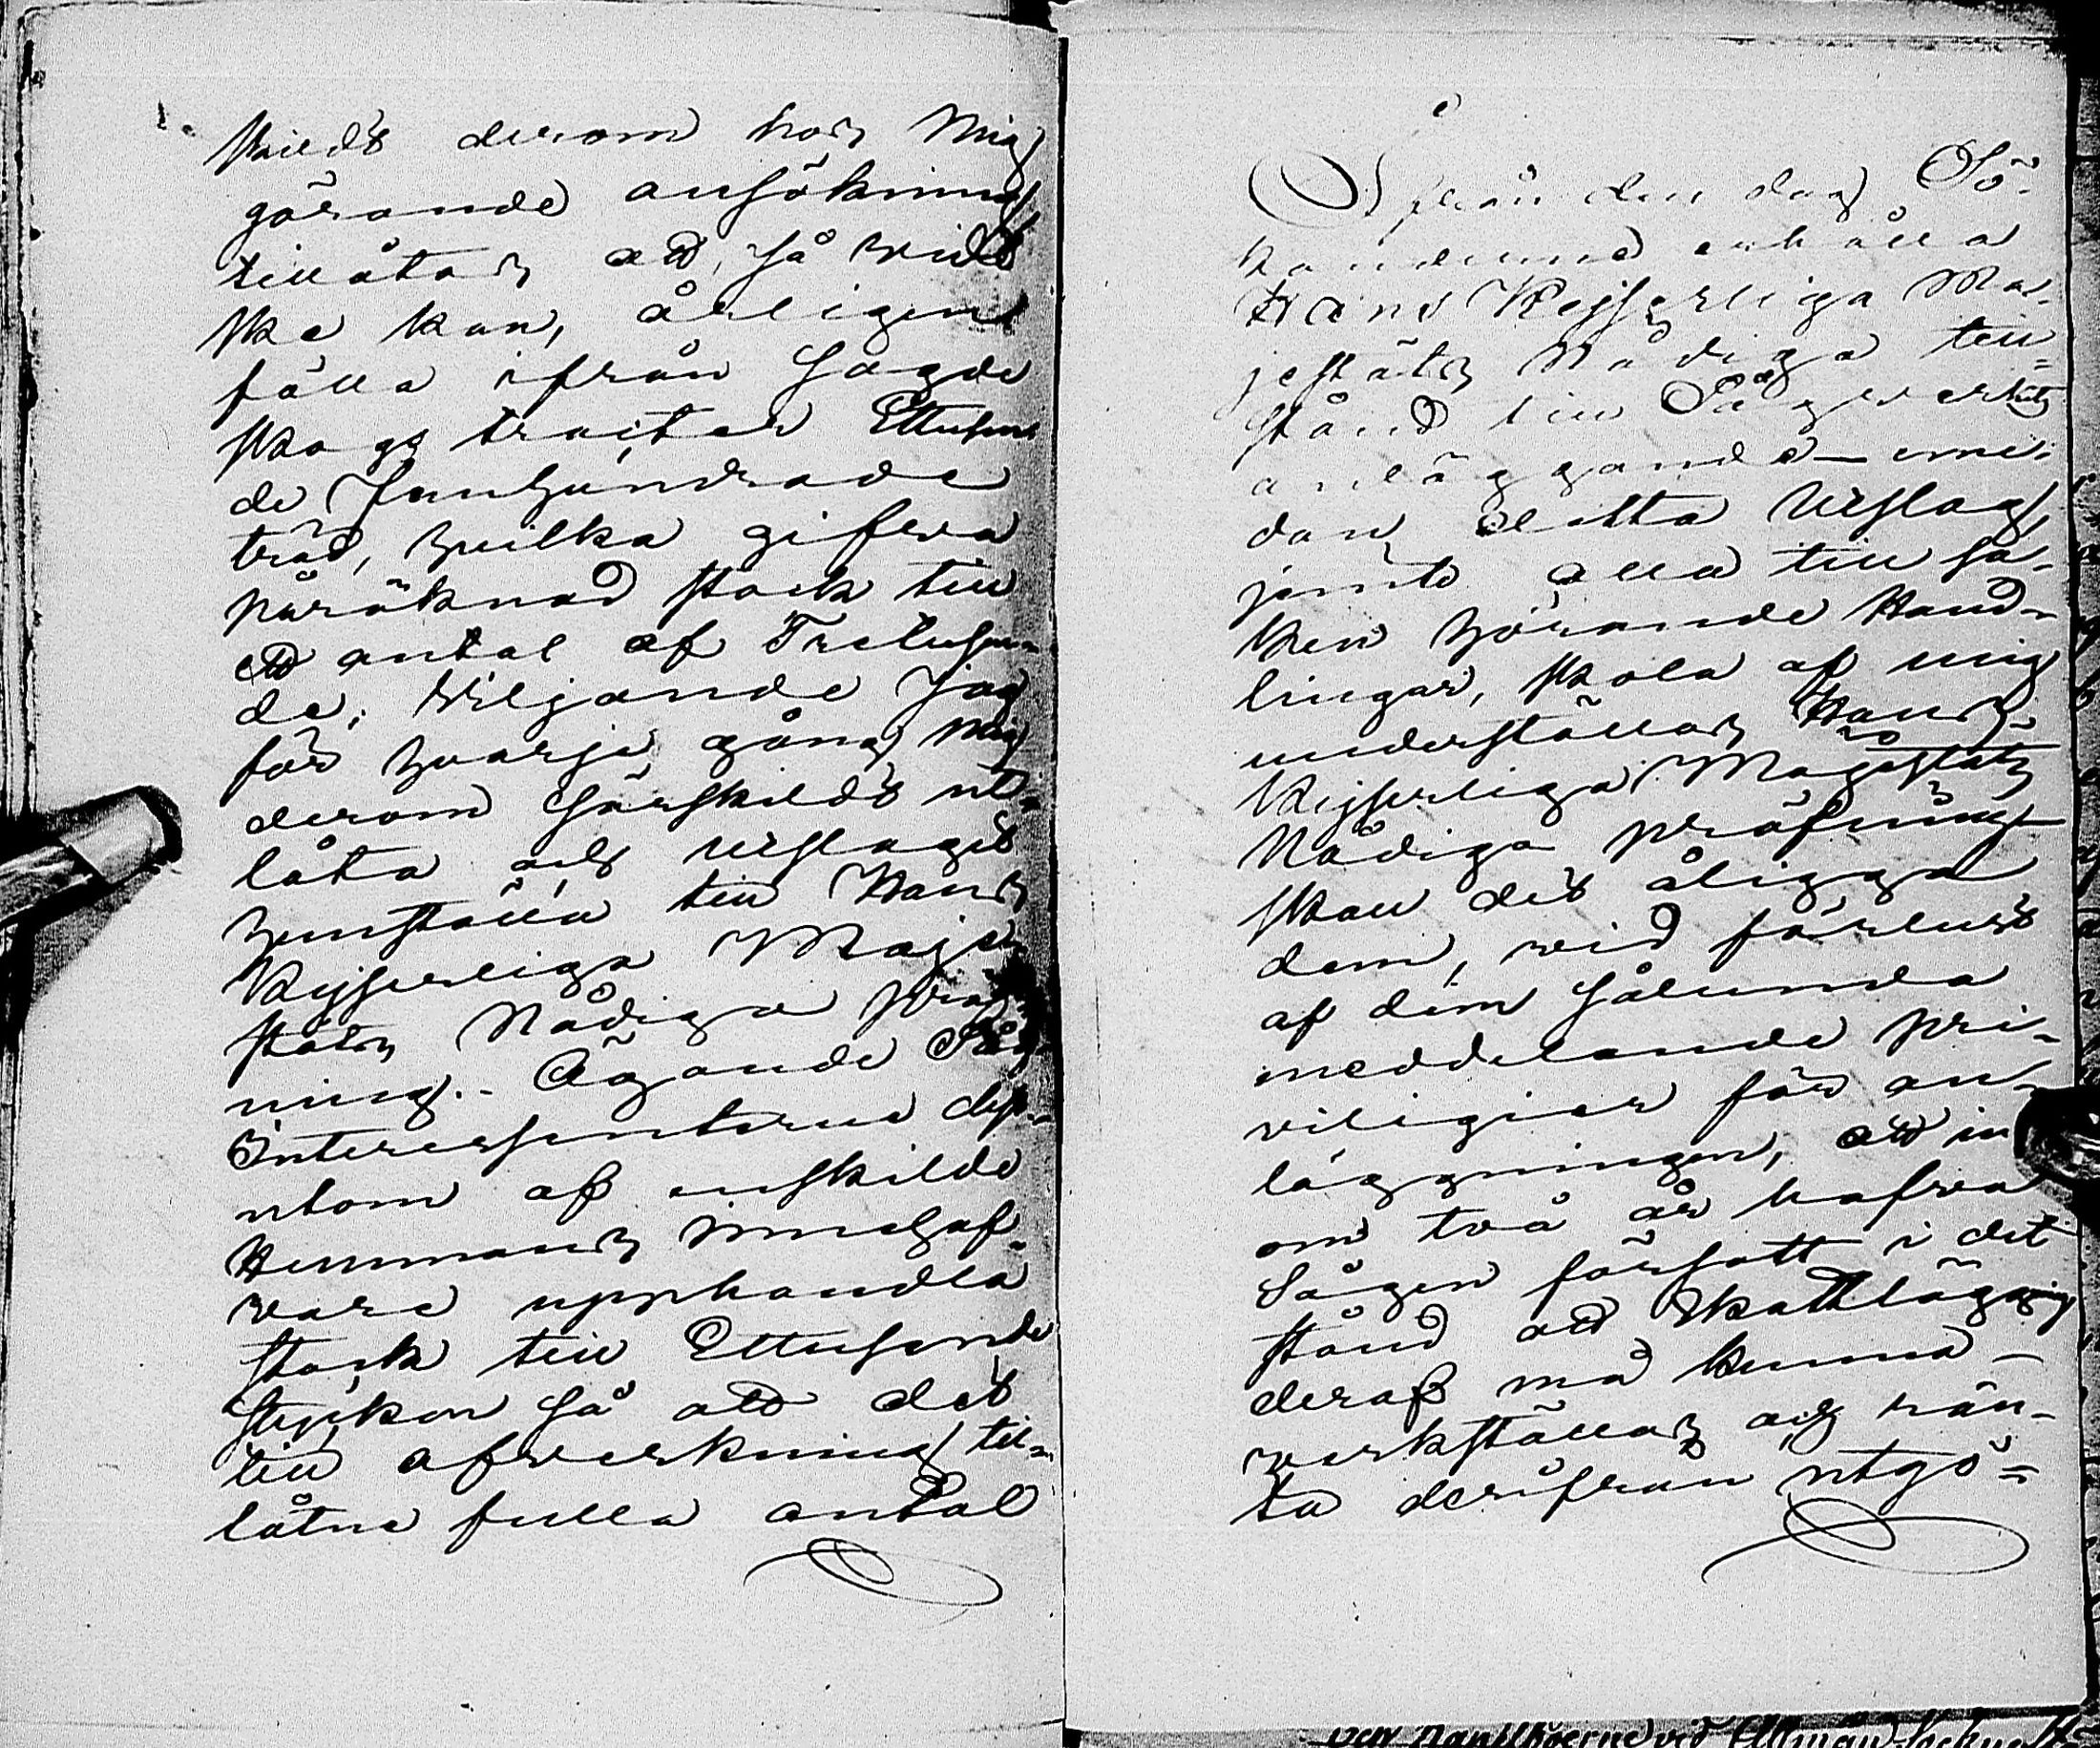 skieldt derom hos Mig
görande ansökning
tillåtas att, så vidt
ske kan, årligen
fälla ifrån sagde
skogs tracter Ettusen
de Femhundrade
träd, hvilka gifva
påräknad stock till
ett antal af Tretusen-
de; Viljande Jag
för hvarje gång mig
derom särskildt ut-
låta och utslaget
hemställa till Hans
Kejserliga Maje-
stäts Nådiga pröf-
ning. - Ägande Såg
Interessenterne dess-
utom af enskilde
Hemmans innehaf-
vare upphandla
stock till Ettusende
stycken så att det
till afverkning til-
låtne fulla antal
Ifrån den dag Sö-
kanderne erhålla
Hans Kejserliga Ma-
jestäts Nådiga till-
stånd till Sågverkets
anläggande - eme-
dan detta Utslag
jemte alla till sa-
ken hörande Hand-
lingar, skola af mig
underställas Hans
Kejserliga Majestäts
Nådiga pröfning
skall det åligga
dem, vid förlust
af dem sålunda
meddelande pri-
viligier för an-
läggningen, att in
om två år hafva
Sågen försatt i det
stånd att Skattläggning
deraf må kunna -
verkställas och rän-
ta derifrån utgö-